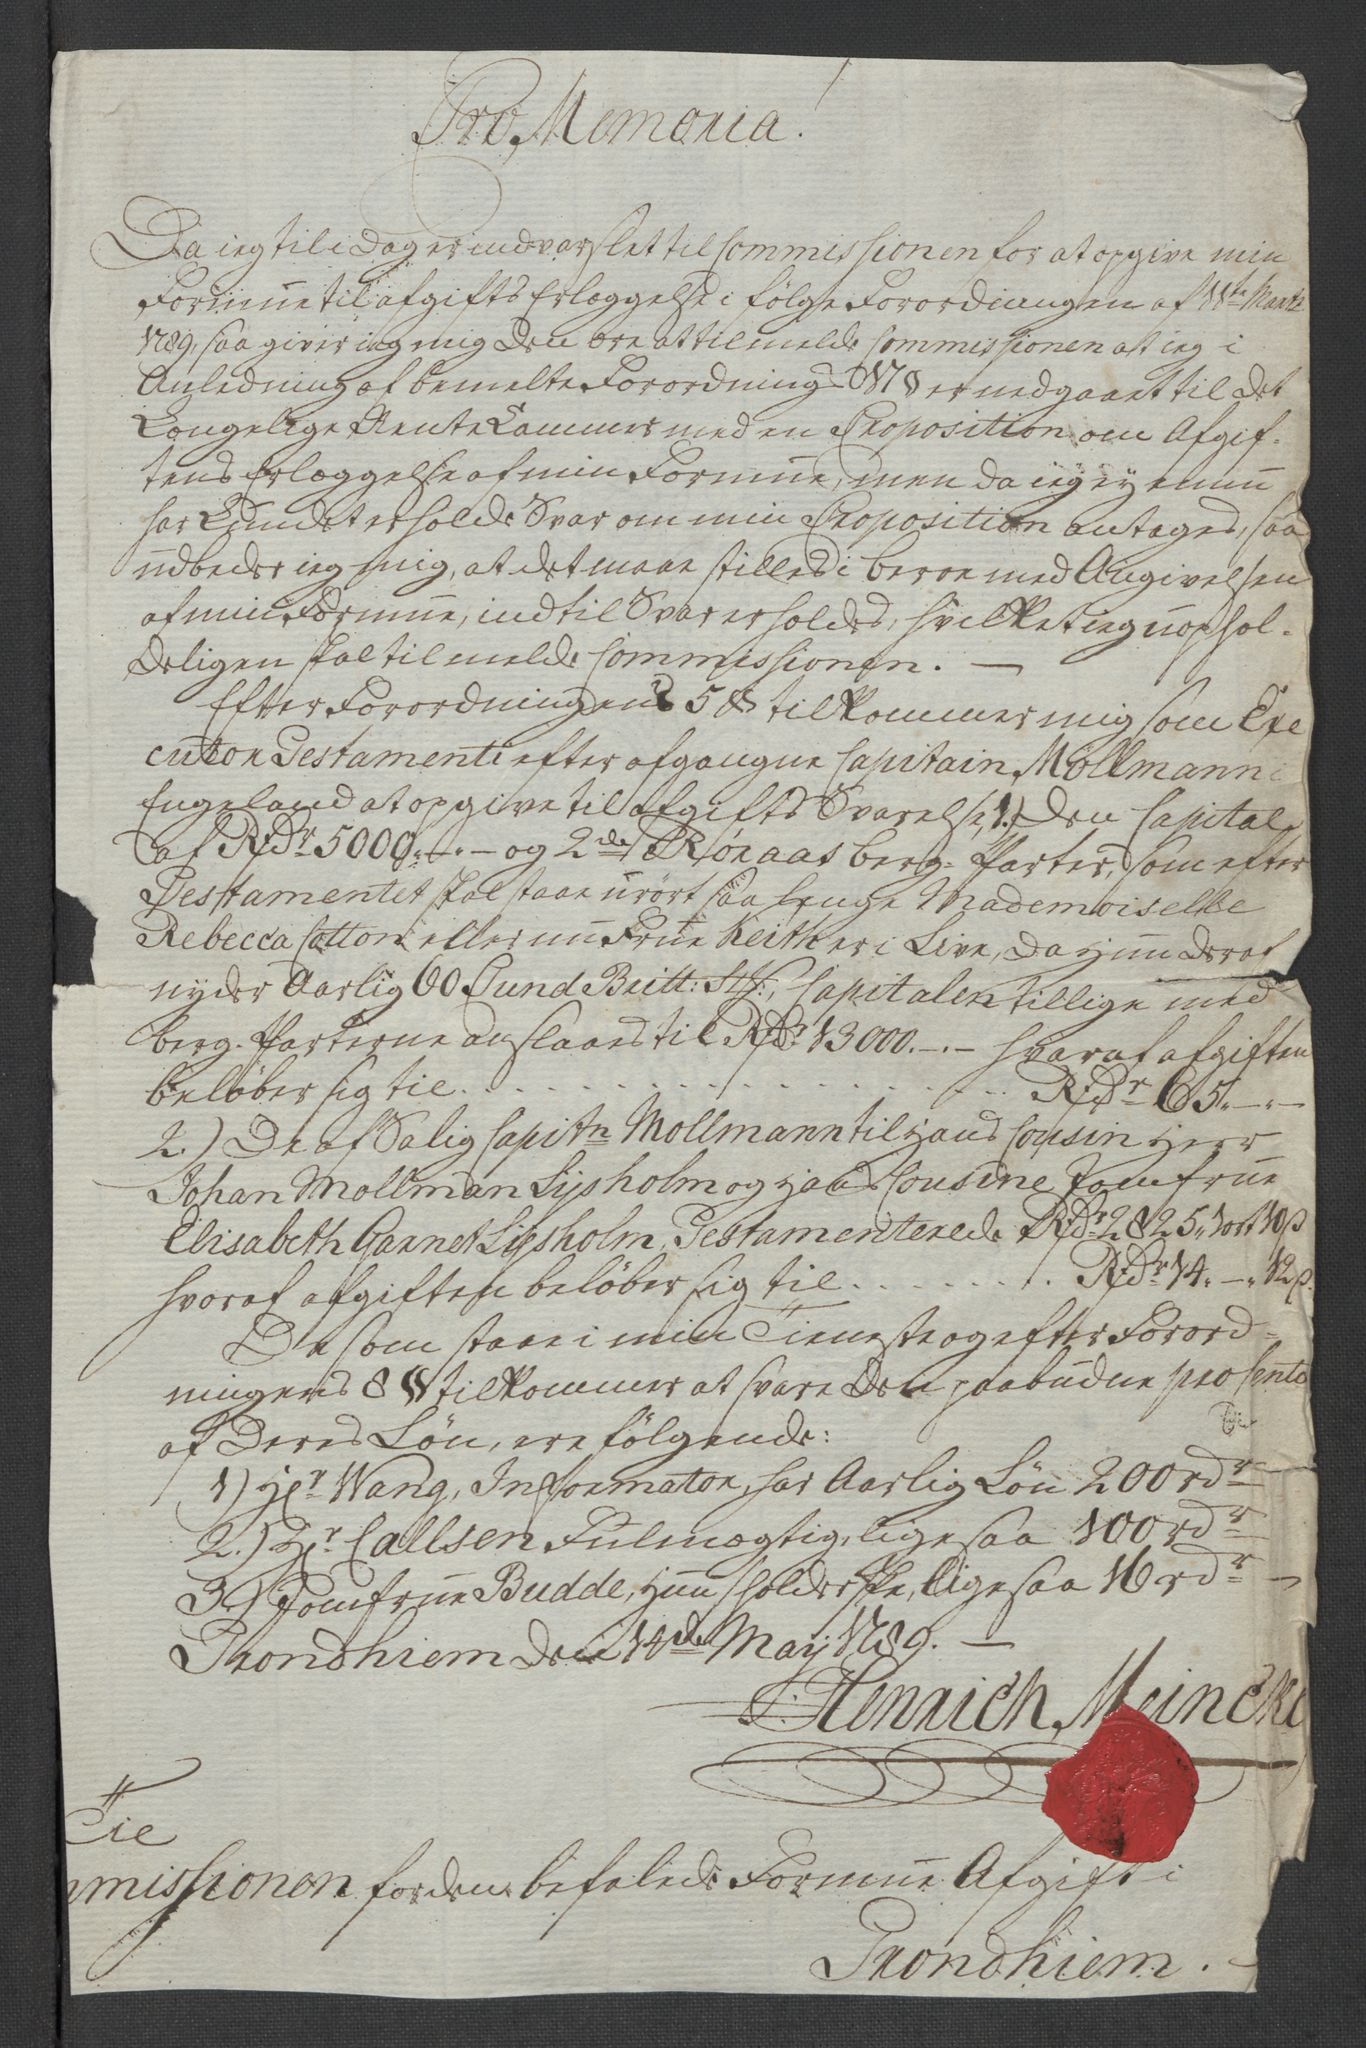 Pro Memoria!
Da ieg til i Dag er indvarslet til Commissionen for at opgive min
Formue til afgifts Erlæggelse i følge Forordningen af 11te Martz
1789, saa giver ieg mig den ære at tilmelde Commissionen at ieg i
Anledning af bemelte Forordnings 17 § er nedgaaet til det
Kongelige Rente Kammer med en Proposition om Afgif-
tens Erlæggelse af min Formue, men da ieg ey ennu
har kundet erholde Svar om min Proposition antages, saa
udbeder ieg mig, at det maae stilles i beroe med Angivelsen
af min Formue, indtil Svar erholdes, hvilket ieg uophol-
deligen skal tilmelde Commissionen. —
Efter Forordningens 5 § tilkommer mig som Exe
cutor Testamenti efter afgangne Capitain Mollmann i
Engeland at opgive til afgifts Svarelse, 1.) Den Capital
af Rdr 5000.-.- og 2de Røraas berg-Parter, som efter
Testamentet skal staae urørt saa lenge Mademoiselle
Rebecca Cotton eller nu Frue Keith er i Live, da hun deraf
nyder Aarlig 60 Pund Britt: St:, Capitalen tillige med
berg-Parterne anslaaes til Rdr 13000.-.- hvoraf afgiften
beløber sig til . . . . . . . . . . Rdr 65.-.-
2.) De af Salig Capitn Mollmann til hans Cousin Herr
Johan Mollman Lysholm og hans Cousine Jomfrue
Elisabeth Garnet Lysholm, Testamenterede Rdr 2825, 1 ort 10 s
hvoraf afgiften beløber sig til . . . . . . . Rdr 14.-.12 s.
De som staae i min Tieneste og efter Forord-
ningens 8 § tilkommer at svare den paabudne pro Cento
af Deres Løn, ere følgende:
1) Hr Wang, Informator, har Aarlig Løn 200 rdr
2.) Hr Callsen Fulmægtig, ligesaa 100 rdr
3.) Jomfrue Budde, Huusholderske, ligesaa 16 rdr —
Trondhiem den 14de May 1789. —
Henrich Meincke
Til
mmissionen for den befalede Formue Afgift i
Trondhiem. —